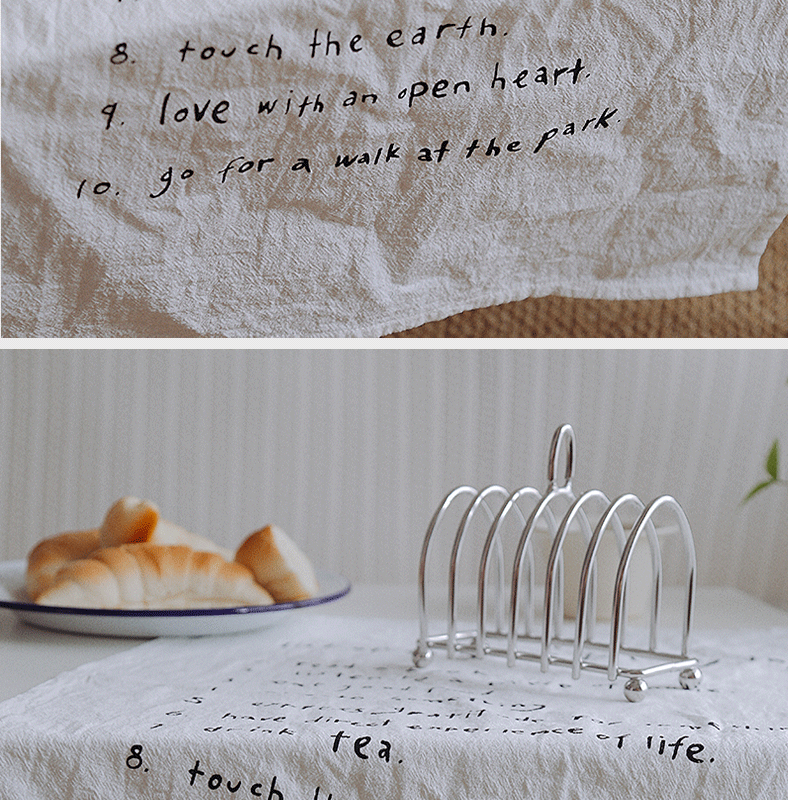 8. touch the earth.
9. love with an open heart.
10. go for a walk at the park.
5
6 have direct experience of life.
7 drink tea.
8. touch